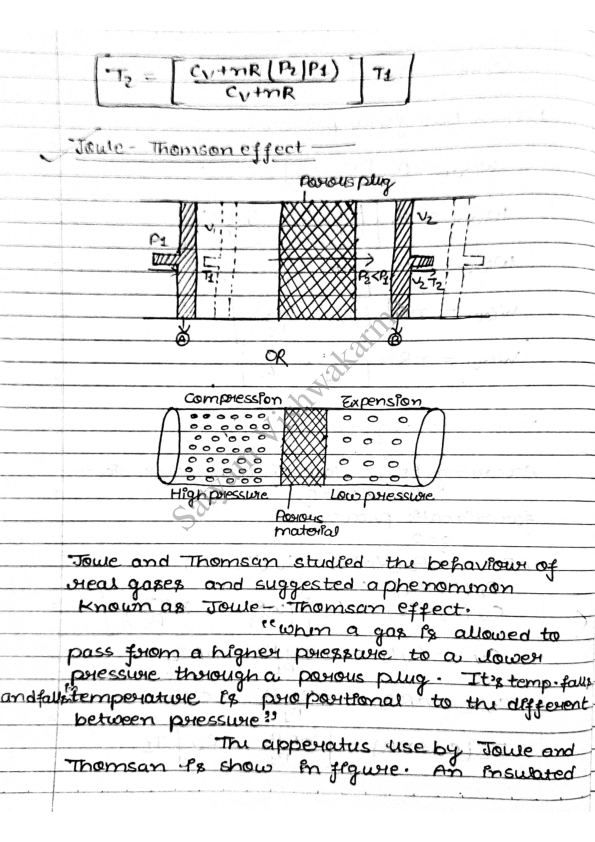 T₂ = [ Cv+nR(P₂|P₁) / Cv+nR ] T₁
Joule - Thomson effect
Porous plug
V₁ V₂
P₁
T₁ P₂<P₁ V₂ T₂
A B
OR
Compression Expension
High pressure Low pressure
Porous
material
Joule and Thomsan studied the behaviour of
real gases and suggested a phenommon
known as Joule - Thomsan effect.
"when a gas is allowed to
pass from a higher pressure to a lower
pressure through a porous plug. It's temp. falls
and falls "temperature is proportional to the different
between pressure"
The apperatus use by Joule and
Thomsan is show in figure. An insulated
Satyam Vishwakarm